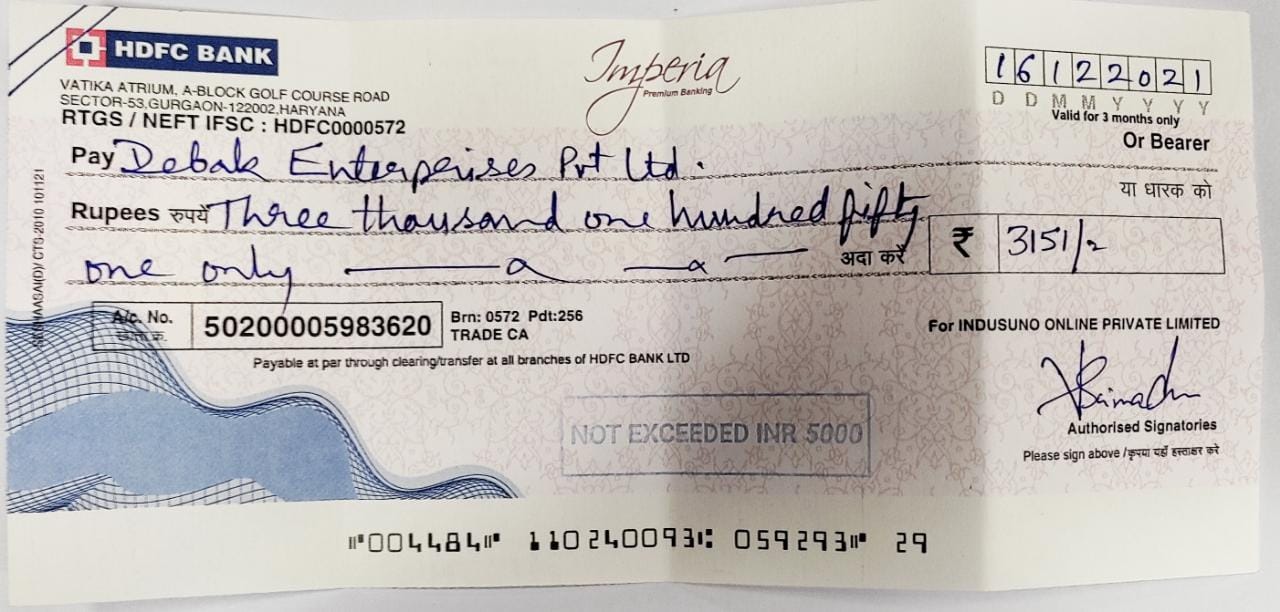 HDFC BANK
Imperia
Premium Banking
VATIKA ATRIUM, A-BLOCK GOLF COURSE ROAD
SECTOR-53,GURGAON-122002,HARYANA
RTGS / NEFT IFSC : HDFC0000572
16122021
D D M M Y Y Y Y
Valid for 3 months only
Pay Debak Enterprises Pvt Ltd.
Or Bearer
या धारक को
Rupees रुपयें Three thousand one hundred fifty
one only
अदा करें
₹ 3151/-
A/c. No.
50200005983620
Brn: 0572 Pdt:256
TRADE CA
Payable at par through clearing/transfer at all branches of HDFC BANK LTD
For INDUSUNO ONLINE PRIVATE LIMITED
NOT EXCEEDED INR 5000
Authorised Signatories
Please sign above / कृपया यहाँ हस्ताक्षर करे
CTS-2010 101121
⑈004484⑈ 110240093⑆ 059293⑈ 29